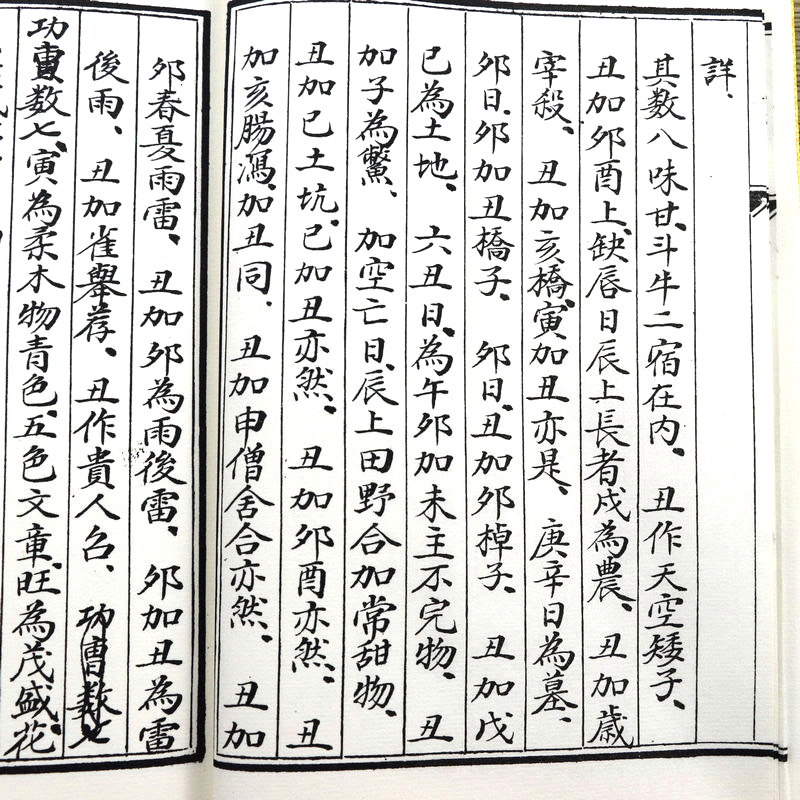 詳、
其数八味甘、斗牛二宿在内、　丑作天空矮子、
丑加卯酉上、缺唇日辰上長者戌為農、　丑加歲
宰殺、　丑加亥橋、寅加丑亦是、　庚辛日為墓、
卯日、卯加丑橋子、　卯日、丑加卯棹子、　丑加戊
已為土地、　六丑日、為午卯加未主不完物、　丑
加子為鱉、　加空亡日、辰上田野合加常甜物、
丑加巳土坑、巳加丑亦然、　丑加卯酉亦然、　丑
加亥腸瀉、加丑同、　丑加申僧舍合亦然、　丑加
卯春夏雨雷、　丑加卯為雨後雷、　卯加丑為雷
後雨、　丑加雀舉荐、　丑作貴人召、　功曹数七
功曹数七、寅為柔木物青色、五色文章、旺為茂盛花